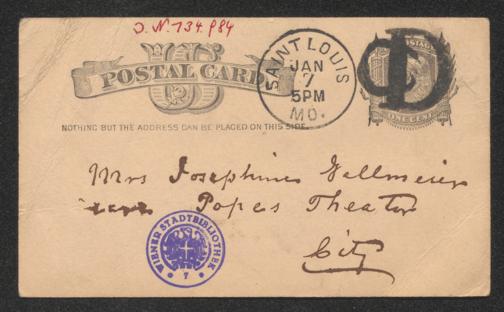 J.N. 734.984
U.S.
POSTAL CARD
NOTHING BUT THE ADDRESS CAN BE PLACED ON THIS SIDE.
SAINT LOUIS
JAN
7
5PM
MO.
POSTAGE
ONE CENT
Mrs Josephine Gallmeier
Popes Theater
City
WIENER STADTBIBLIOTHEK
7